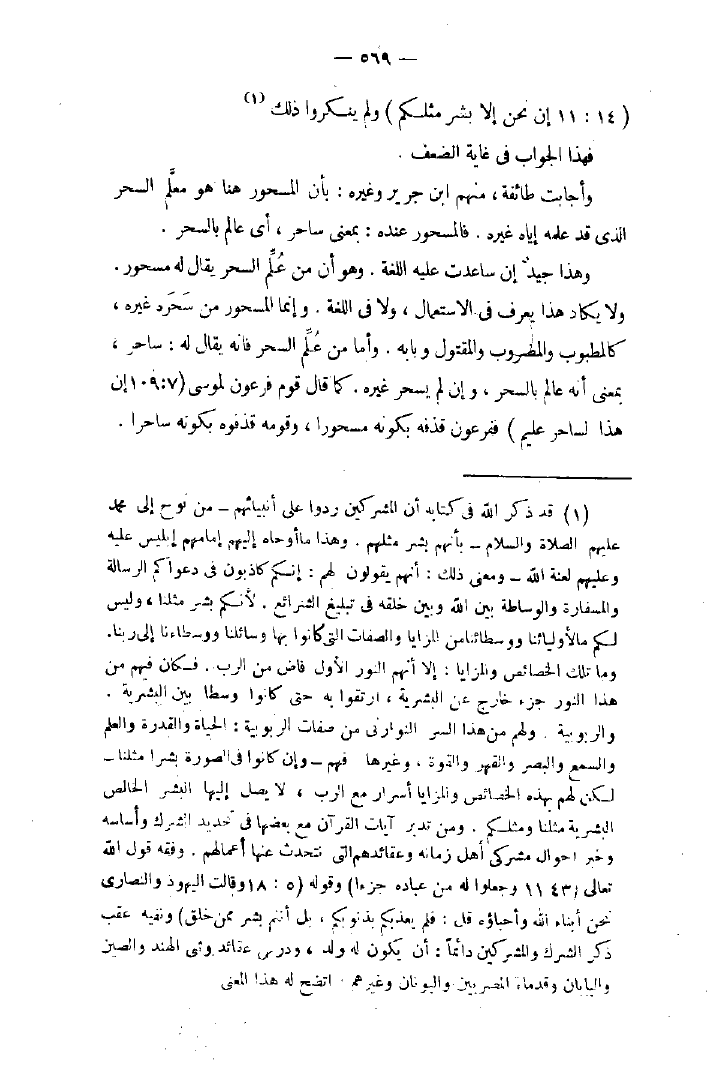 — ٥٦٩ —
( ١٤ : ١١ إن نحن إلا بشر مثلكم ) ولم ينكروا ذلك (١)
فهذا الجواب فى غاية الضعف .
وأجابت طائفة ، منهم ابن جرير وغيره : بأن المسحور هنا هو معلَّم السحر
الذى قد علمه إياه غيره . فالمسحور عنده : بمعنى ساحر ، أى عالم بالسحر .
وهذا جيدٌ إن ساعدت عليه اللغة . وهو أن من عُلِّم السحر يقال له مسحور .
ولا يكاد هذا يعرف فى الاستعمال ، ولا فى اللغة . وإنما المسحور من سَحَره غيره ،
كالمطبوب والمضروب والمقتول وبابه . وأما من عُلِّم السحر فانه يقال له : ساحر ،
بمعنى أنه عالم بالسحر ، وإن لم يسحر غيره . كما قال قوم فرعون لموسى (٧:١٠٩ إن
هذا لساحر عليم ) ففرعون قذفه بكونه مسحورا ، وقومه قذفوه بكونه ساحرا .
(١) قد ذكر الله فى كتابه أن المشركين ردوا على أنبيائهم – من نوح إلى محمد
عليهم الصلاة والسلام – بأنهم بشر مثلهم . وهذا ماأوحاه إليهم إمامهم إبليس عليه
وعليهم لعنة الله – ومعنى ذلك : أنهم يقولون لهم : إنكم كاذبون فى دعواكم الرسالة
والسفارة والوساطة بين الله وبين خلقه فى تبليغ الشرائع . لأنكم بشر مثلنا ، وليس
لكم مالأوليائنا ووسطائنامن المزايا والصفات التى كانوا بها وسائلنا ووسطاءنا إلى ربنا.
وما تلك الخصائص والمزايا : إلا أنهم النور الأول فاض من الرب . فكان فيهم من
هذا النور جزء خارج عن البشرية ، ارتقوا به حتى كانوا وسطا بين البشرية .
والربوبية . ولهم من هذا السر النوارنى من صفات الربوبية : الحياة والقدرة والعلم
والسمع والبصر والقهر والقوة ، وغيرها فهم – وإن كانوا فى الصورة بشرا مثلنا –
لكن لهم بهذه الخصائص والمزايا أسرار مع الرب ، لا يصل إليها البشر الخالص
البشرية مثلنا ومثلكم . ومن تدبر آيات القرآن مع بعضها فى تحديد الشرك وأساسه
وخبر احوال مشركى أهل زمانه وعقائدهم التى تتحدث عنها أعمالهم . وفقه قول الله
تعالى (٤٣ ١١ وجعلوا له من عباده جزءا) وقوله (٥ : ١٨ وقالت اليهود والنصارى
نحن أبناء الله وأحباؤه قل : فلم يعذبكم بذنوبكم ، بل أنتم بشر ممن خلق) ونفيه عقب
ذكر الشرك والمشركين دائماً : أن يكون له ولد ، ودرس عقائد وثنى الهند والصين
واليابان وقدماء المصريين واليونان وغيرهم . اتضح له هذا المعنى